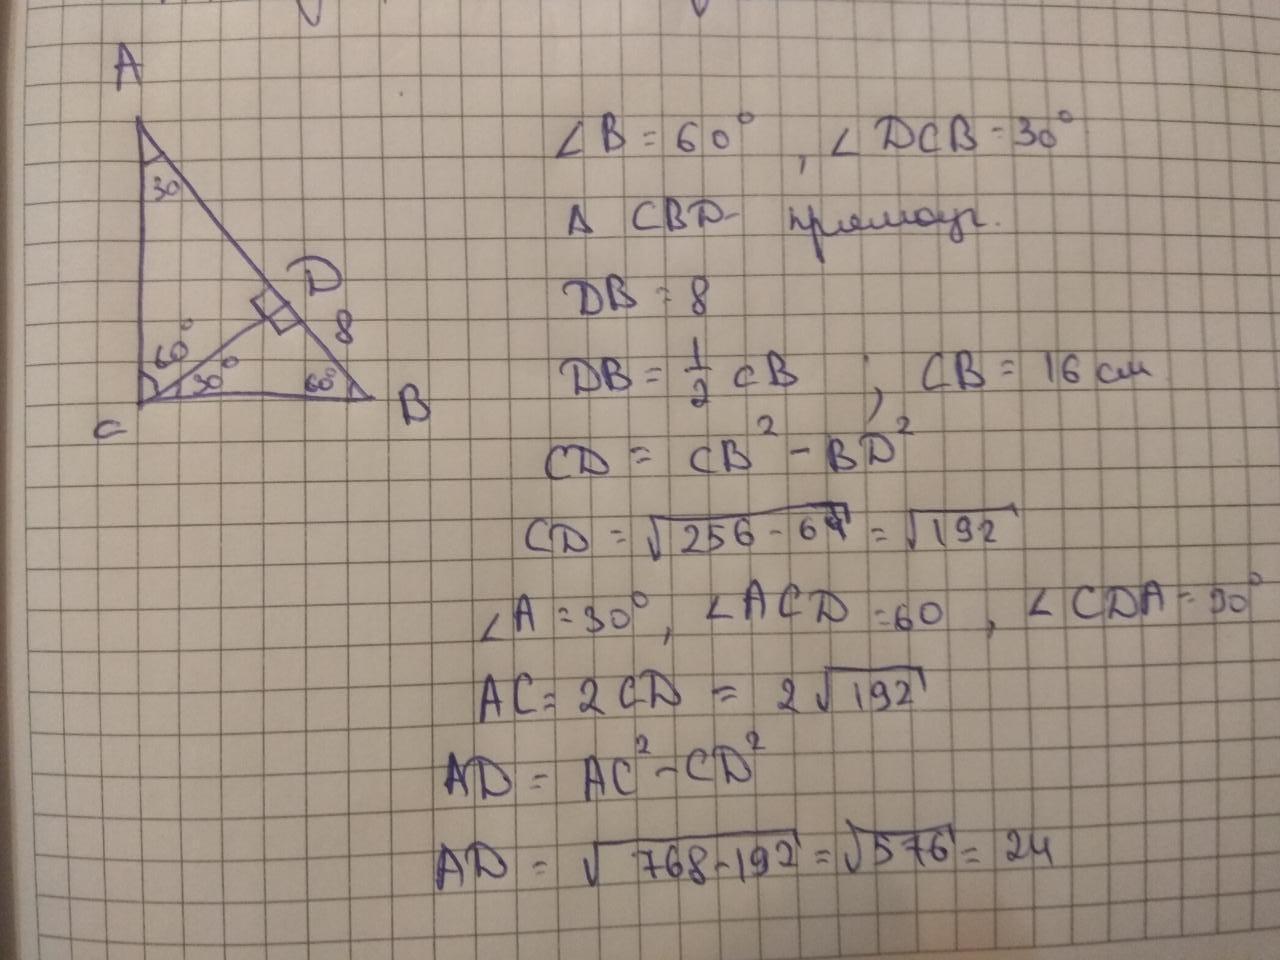 A
30
D
8
60°
30°
60°
C
B
∠B = 60°, ∠DCB = 30°
Δ CBD - прямоуг.
DB = 8
DB = 1/2 CB ; CB = 16 см
CD = CB² - BD²
CD = √256 - 64 = √192
∠A = 30°, ∠ACD = 60, ∠CDA = 90°
AC = 2CD = 2√192
AD = AC² - CD²
AD = √768 - 192 = √576 = 24